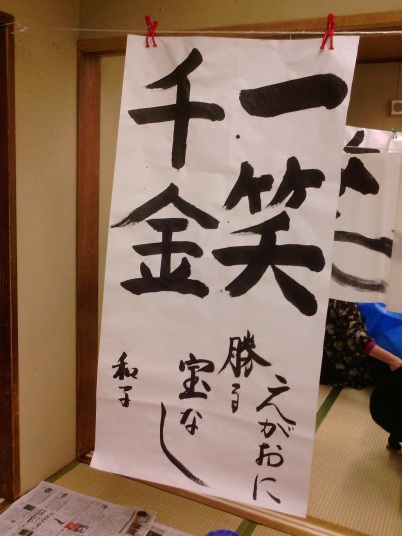 一笑
千金
えがおに
勝る
宝なし
和子